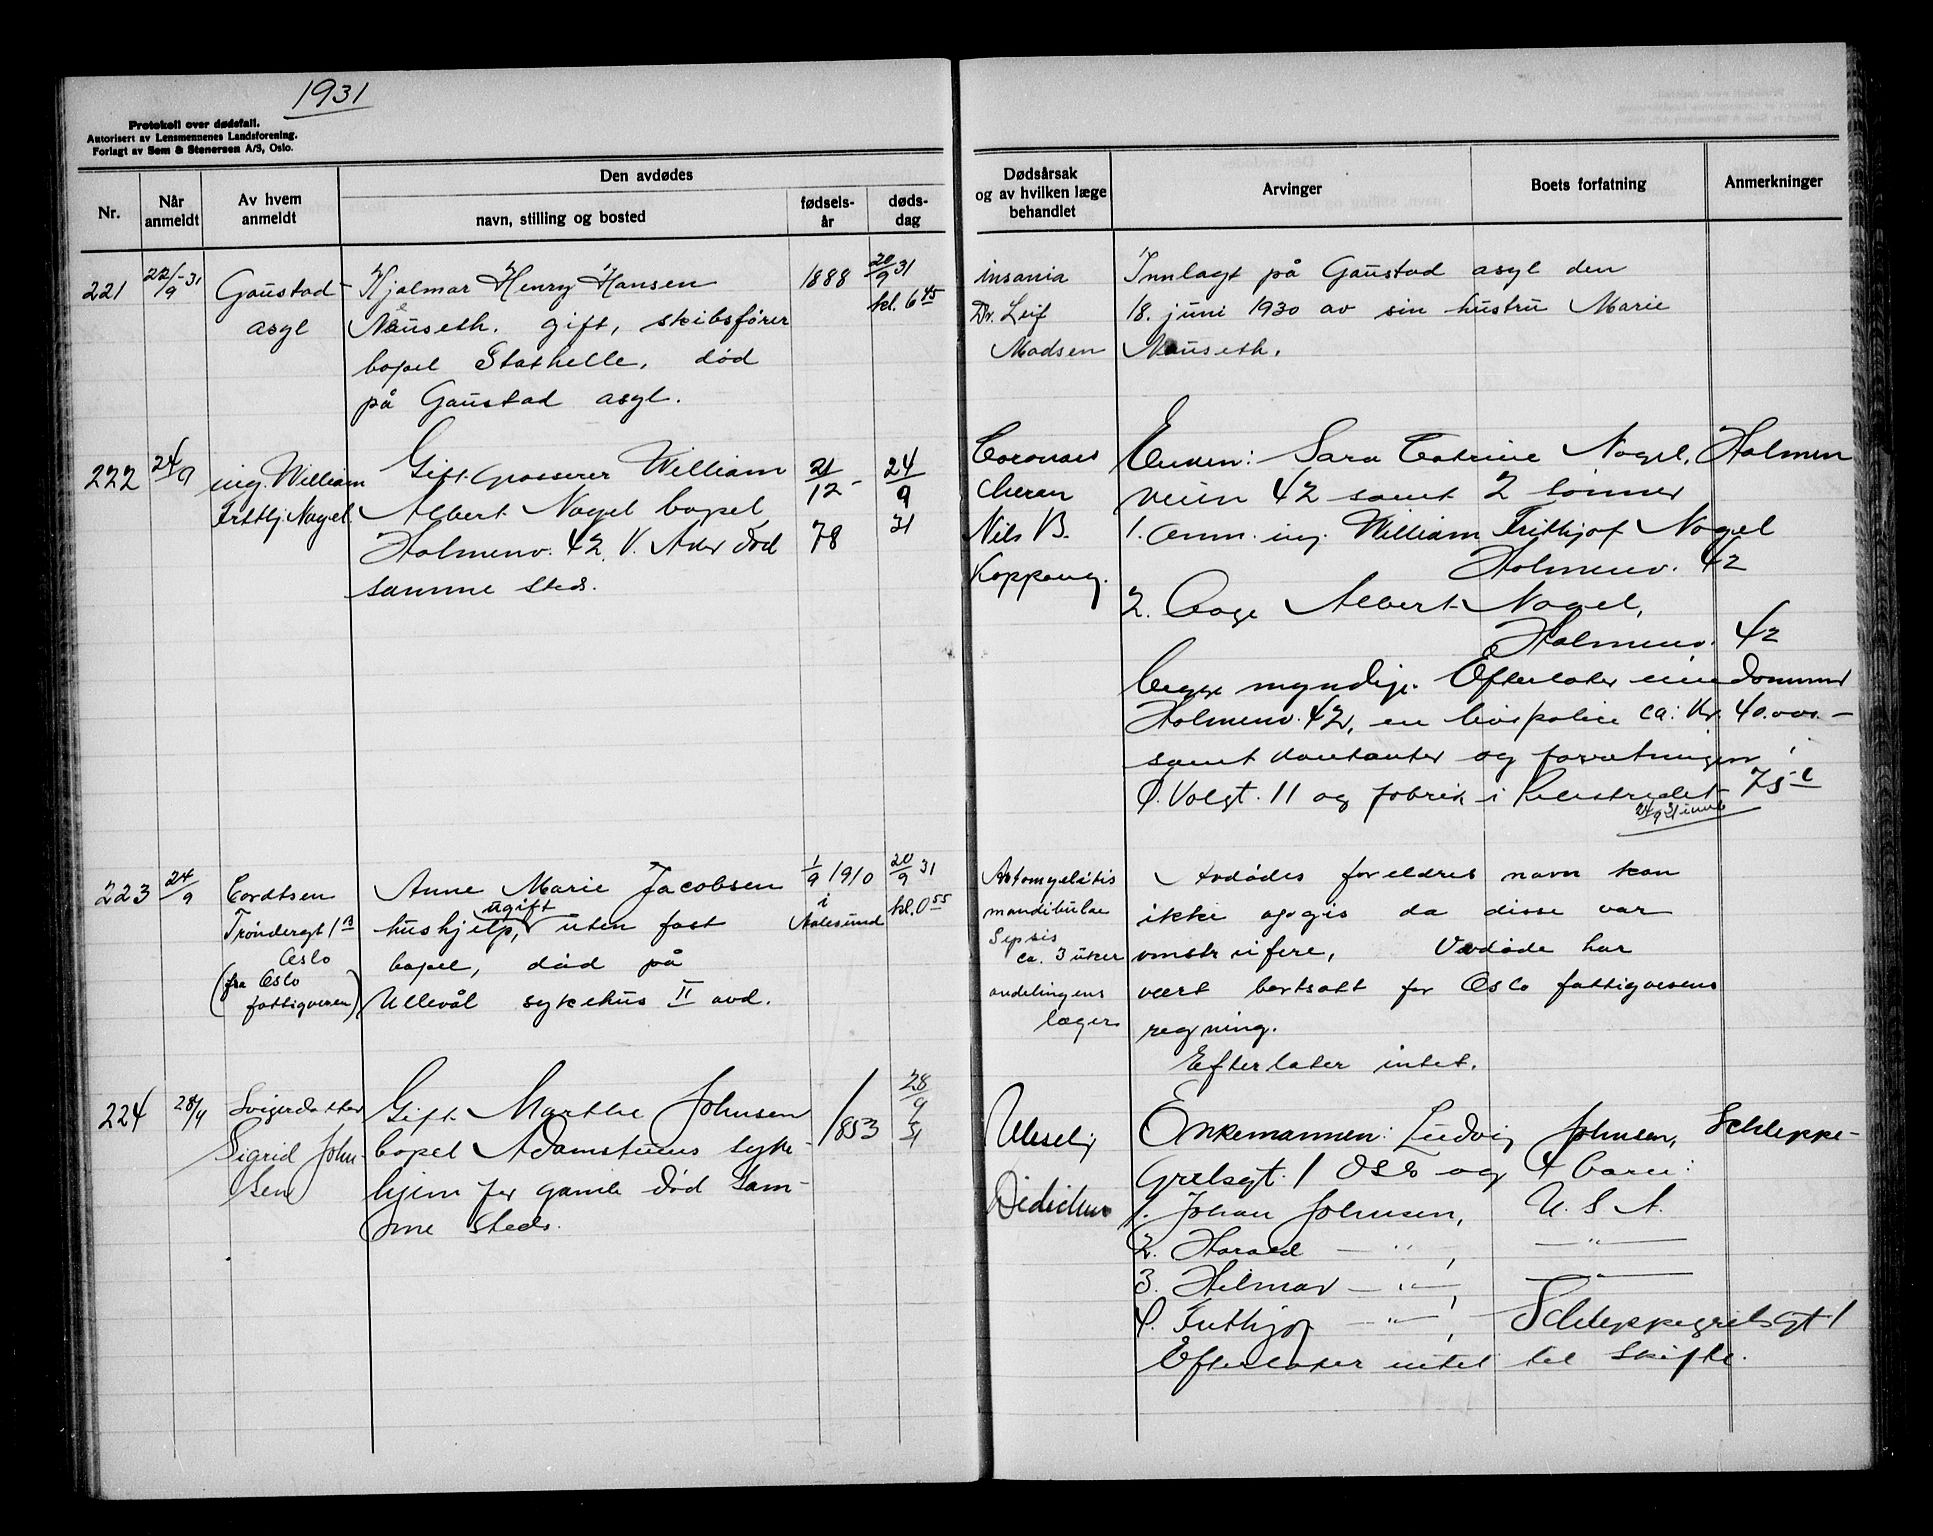 1931
Protokoll over dødsfall.
Autorisert av Lensmennenes Landsforening.
Forlagt av Sem & Stenersen A/S, Oslo.
Nr.
Når anmeldt
Av hvem anmeldt
Den avdødes
navn, stilling og bosted
fødsels-år
døds-dag
Dødsårsak og av hvilken læge behandlet
Arvinger
Boets forfatning
Anmerkninger
221
22/9-31
Gaustad
asyl
Hjalmar Henry Hansen
Nauseth. gift, skibsfører
bopel Stathelle, død
på Gaustad asyl.
1888
20/9 31
kl. 6 45
insania
Dr. Leif
Madsen
Innlagt på Gaustad asyl den
18. juni 1930 av sin hustru Marie
Nauseth.
222
24/9
ing. William
Frithj. Nagel.
Gift grosserer William
Albert Nagel bopel
Holmenv. 42 V. Aker død
samme sted.
21/12-
78
24/9
31
Nils B.
Koppang.
Enken: Sara Catrine Nagel, Holmen
veien 42 samt 2 sønner
1. Amn. ing. William Frithjof Nagel
Holmenv. 42
2. Aage Albert Nagel,
Holmenv. 42
begge myndige. Efterlater eiendommen
Holmenv. 42, en livspolice ca: kr. 40.000.-
samt kontanter og forretningen i
Ø. Volgt. 11 og fabrik i Pilestredet 75 c
24/9 31
223
24/9
Cordtsen
Trøndergt 1 B
Oslo
(fra Oslo
fattigvesen)
Anne Marie Jacobsen
ugift
hushjelp, uten fast
bopel, død på
Ullevål sykehus II avd.
1/9 1910
i
Aalesund
20/9 31
kl. 0 55
mandibulae
Sepsis
ca. 3 uker
avdelingens
læger
Avdødes foreldres navn kan
ikke opgis da disse var
omstreifere, Avdøde har
vært bortsatt for Oslo fattigvesens
regning.
Efterlater intet.
224
28/9
Svigerdatter
Sigrid John-
sen
Gift Marthe Johnsen
bopel Adamstuens syke-
hjem for gamle død sam-
me sted.
1853
28/9
31
Enkemannen: Ludvig Johnsen, Schleppe-
grelsgt. 1 Oslo og 4 barn:
1. Johan Johnsen, U. S. A.
2. Harald — " —, — " —
3. Hilmar — " —, — " —
4. Frithjof — " —, Schleppegrelsgt 1
Efterlater intet til skifte.